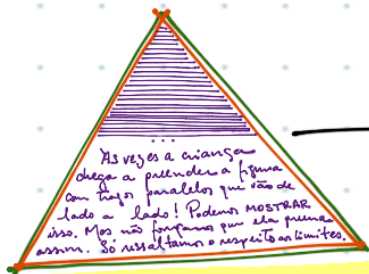 ...
Às vezes a criança
chega a preencher a figura
com traços paralelos que vão de
lado a lado! Podemos MOSTRAR
isso. Mas não forçamos que ela preencha
assim. Só ressaltamos o respeito aos limites.